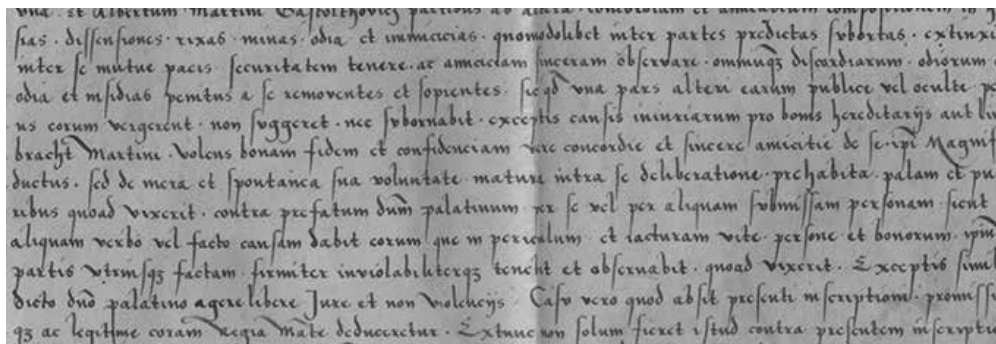 una et Albertum Martini Gastolthovicz partibus ab altera concordiam et amicabilem compositionem in
sias · dissensiones · rixas minas · odia et inimicicias · quomodolibet inter partes predictas subortas · extinxi
inter se mutue pacis securitatem tenere · ac amiciciam sinceram observare · omniuqȝ discordiarum · odiorum
odia et insidias penitus a se removentes et sopientes · sic qđ una pars alteri earum publice vel oculte pe
us eorum vergerent · non suggeret · nec subornabit · exceptis causis iniuriarum pro bonis hereditarijs aut
bracht Martini · Volens bonam fidem et confidenciam vere concordie et sincere amicitie de se · ipĩ Magnif
ductus · sed de mera et spontanea sua voluntate · mature intra se deliberatione · prehabita · palam et pu
ribus quoad vixerit · contra prefatum dum̃ palatinum per se vel per aliquam submissam personam · sicut
aliquam verbo vel facto causam dabit eorum que in periculum et iacturam vite · persone et bonorum · ipm̃
partis utriusqȝ factam · firmiter inviolabiliterqȝ tenebit et observabit · quoad vixerit · Exceptis simil
dicto dño palatino agere libere Jure et non violencijs Casu vero quod absit presenti inscriptioni · promiss
qȝ ac legitime coram Regia Mãte deduceretur · Extunc non solum fieret istud contra presentem inscriptio